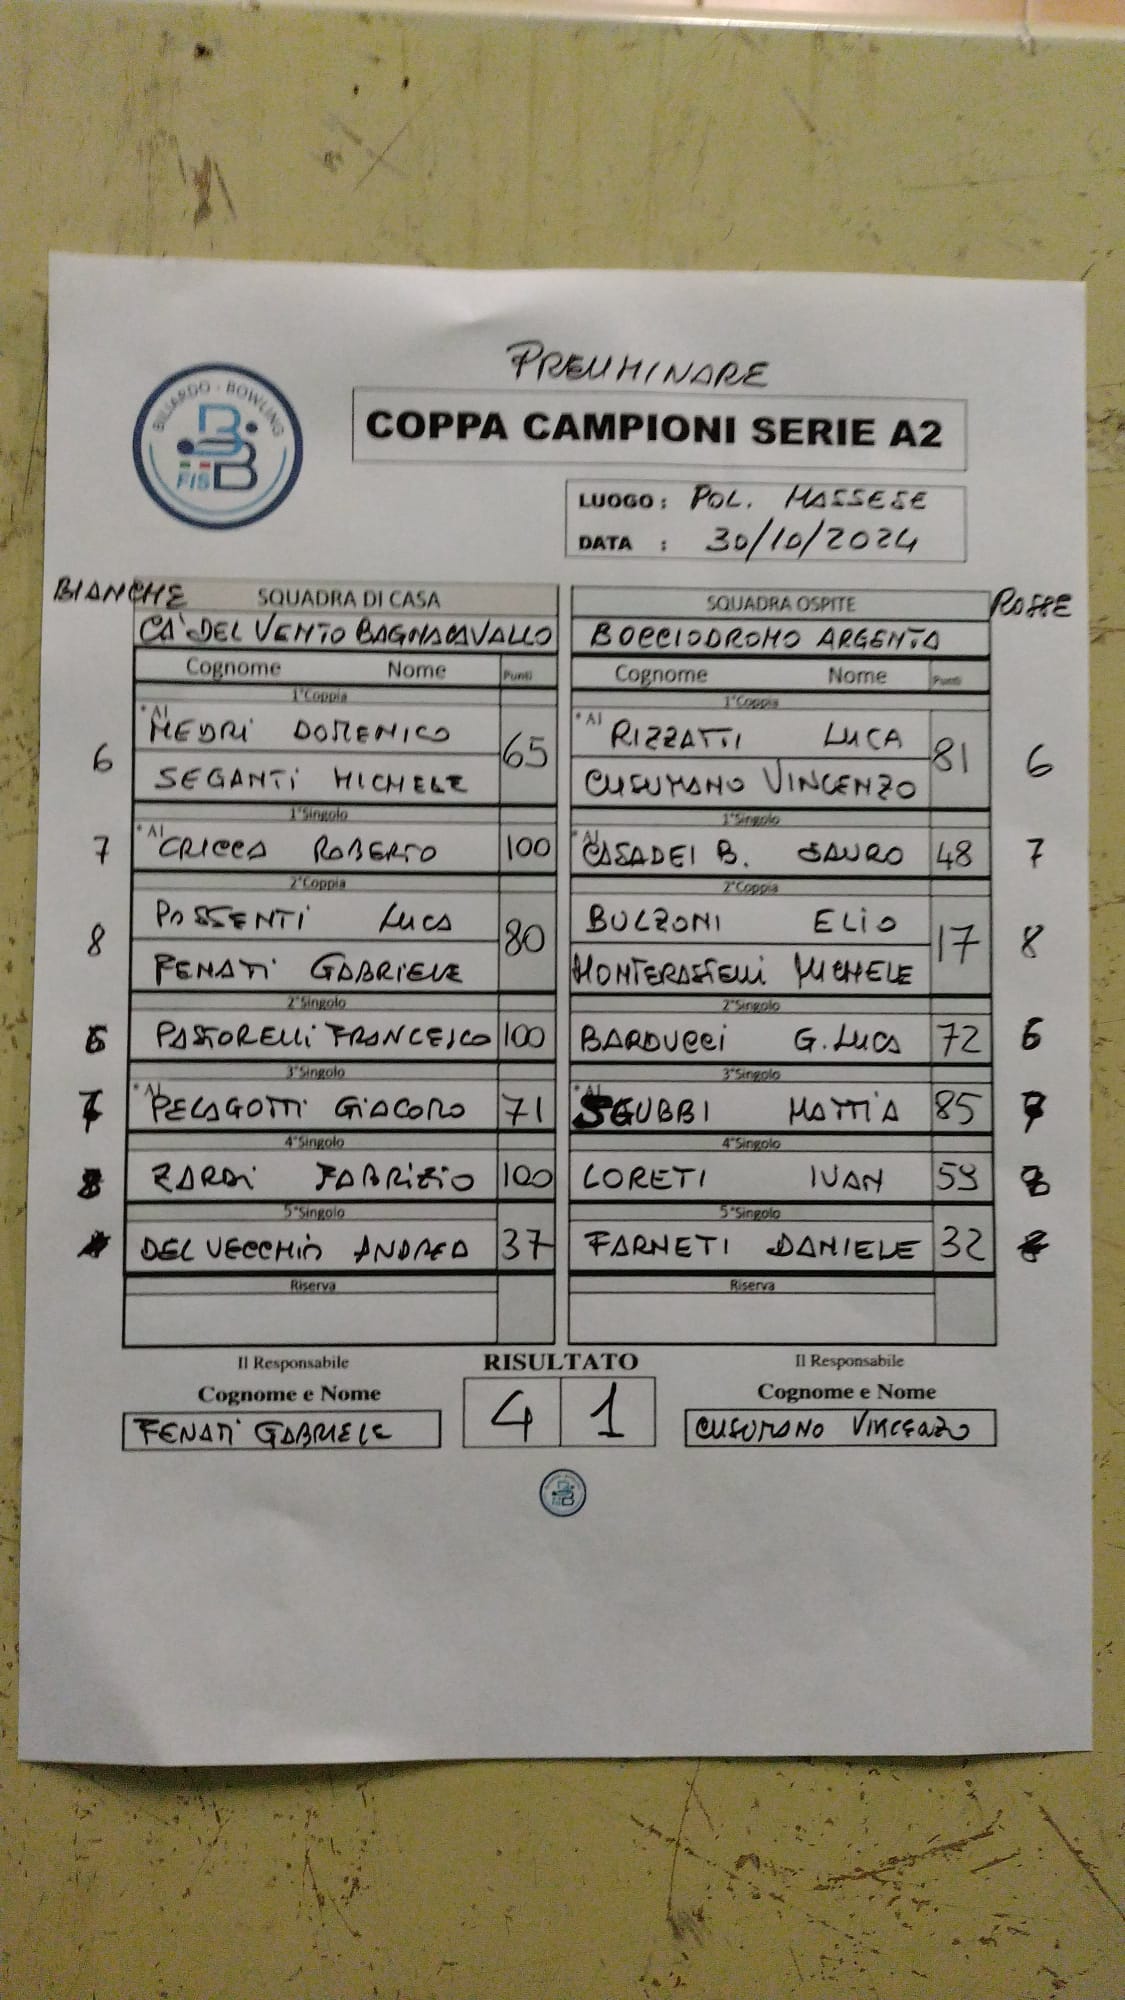 PRELIMINARE
BILIARDO - BOWLING
FISBB
COPPA CAMPIONI SERIE A2
LUOGO : POL. MASSESE
DATA : 30/10/2024
BIANCHE SQUADRA DI CASA SQUADRA OSPITE ROSSE
CA' DEL VENTO BAGNACAVALLO BOCCIODROMO ARGENTA
Cognome Nome Punti Cognome Nome Punti
1°Coppia 1°Coppia
6 * Al MEDRI DOMENICO 65 * Al RIZZATTI LUCA 81 6
SEGANTI MICHELE CUSUMANO VINCENZO
1°Singolo 1°Singolo
7 * Al CRICCA ROBERTO 100 * Al CASADEI B. SAURO 48 7
2°Coppia 2°Coppia
8 POSSENTI LUCA 80 BULZONI ELIO 17 8
FENATI GABRIELE MONTERASTELLI MICHELE
2°Singolo 2°Singolo
6 PASTORELLI FRANCESCO 100 BARDUCCI G. LUCA 72 6
3°Singolo 3°Singolo
7 * Al PELAGOTTI GIACOMO 71 * Al SGUBBI MATTIA 85 7
4°Singolo 4°Singolo
8 ZARDI FABRIZIO 100 LORETI IVAN 59 8
5°Singolo 5°Singolo
DEL VECCHIO ANDREA 37 FARNETI DANIELE 32
Riserva Riserva
Il Responsabile RISULTATO Il Responsabile
Cognome e Nome 4 1 Cognome e Nome
FENATI GABRIELE CUSUMANO VINCENZO